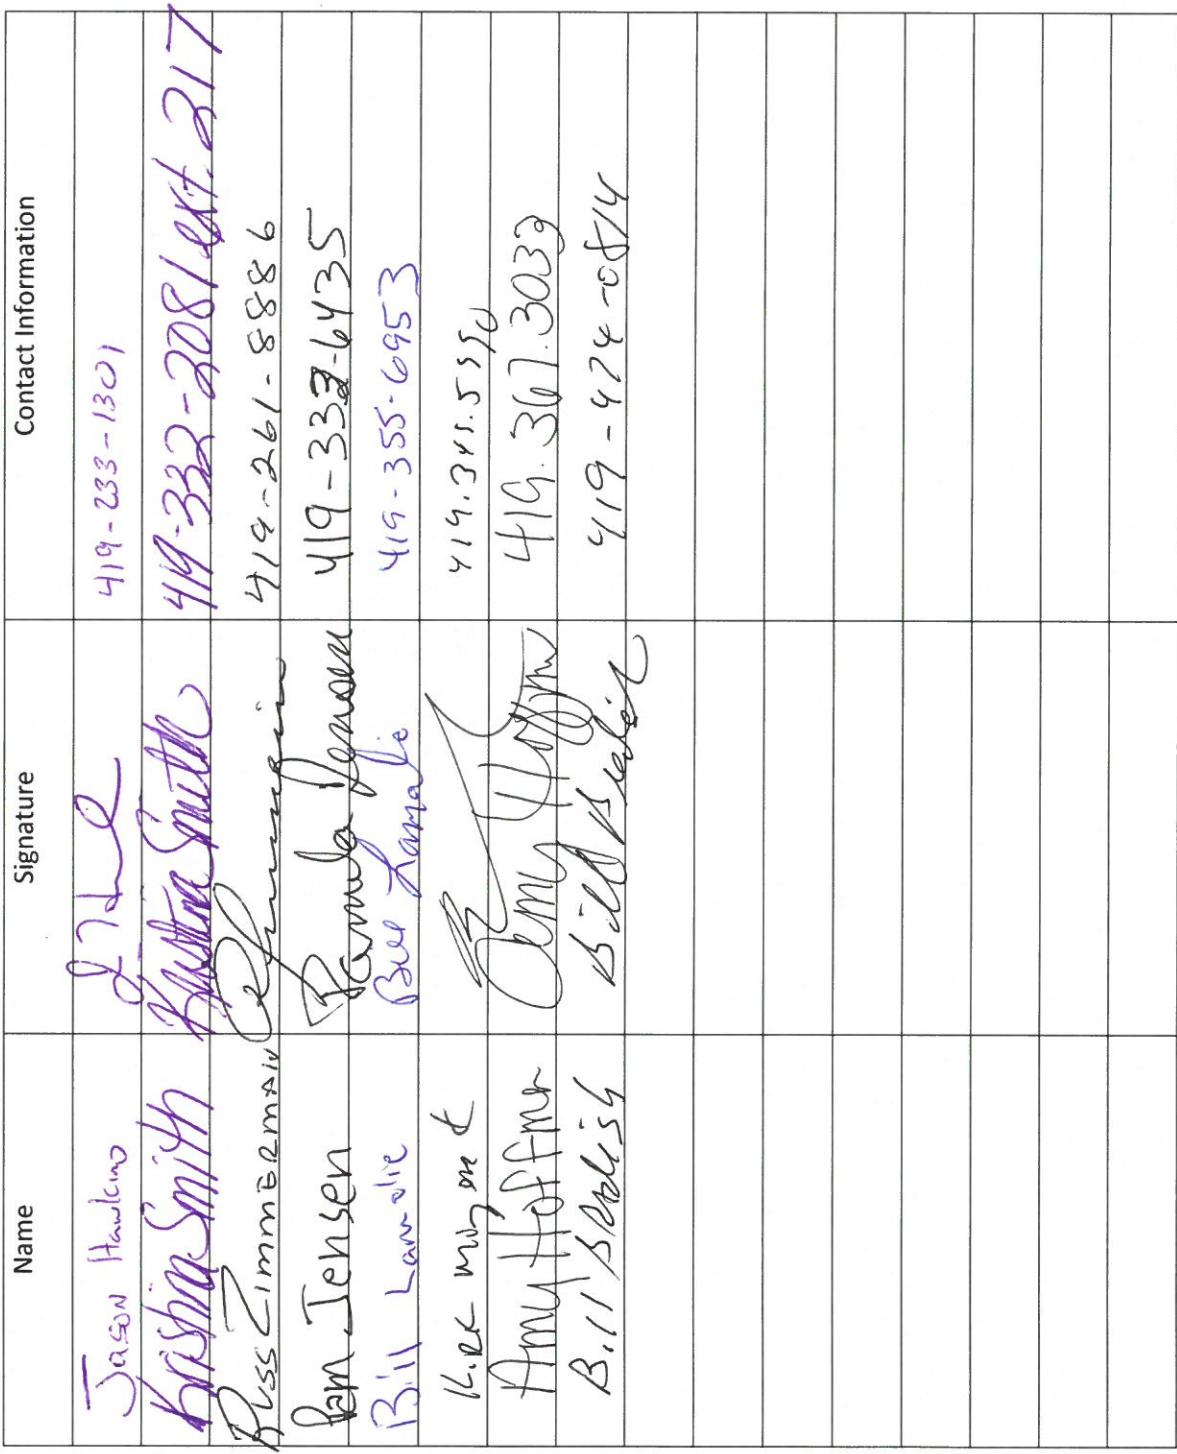 Name Signature Contact Information
Jason Hawkins 419-233-1301
Kristina Smith Kristina Smith 419-332-2081 ext. 217
Russ Zimmerman 419-261-8886
Pam Jensen Pamela Jensen 419-332-6435
Bill Lamalie Bill Lamalie 419-355-6953
Kirk 419.345.5590
Amy Hoffman Amy Hoffman 419.367.3032
Bill Bill 419-424-0514